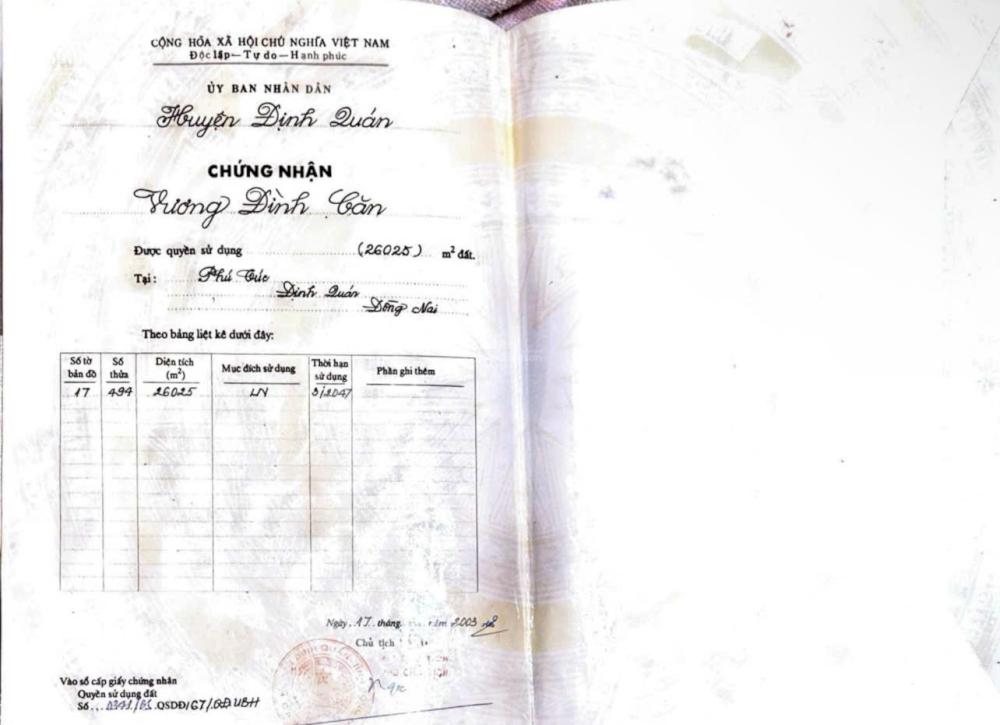 CỘNG HÒA XÃ HỘI CHỦ NGHĨA VIỆT NAM
Độc lập – Tự do – Hạnh phúc
ỦY BAN NHÂN DÂN
Huyện Định Quán
CHỨNG NHẬN
Vương Đình Căn
Được quyền sử dụng (26025) m² đất.
Tại: Phú Túc
Định Quán
Đồng Nai
Theo bảng liệt kê dưới đây:
Số tờ bản đồ Số thửa Diện tích (m²) Mục đích sử dụng Thời hạn sử dụng Phần ghi thêm
17 494 26025 LN 3/2047
Ngày 17 tháng năm 2003
Chủ tịch
Vào sổ cấp giấy chứng nhận
Quyền sử dụng đất
Số QSDĐ/GT/QĐUBH